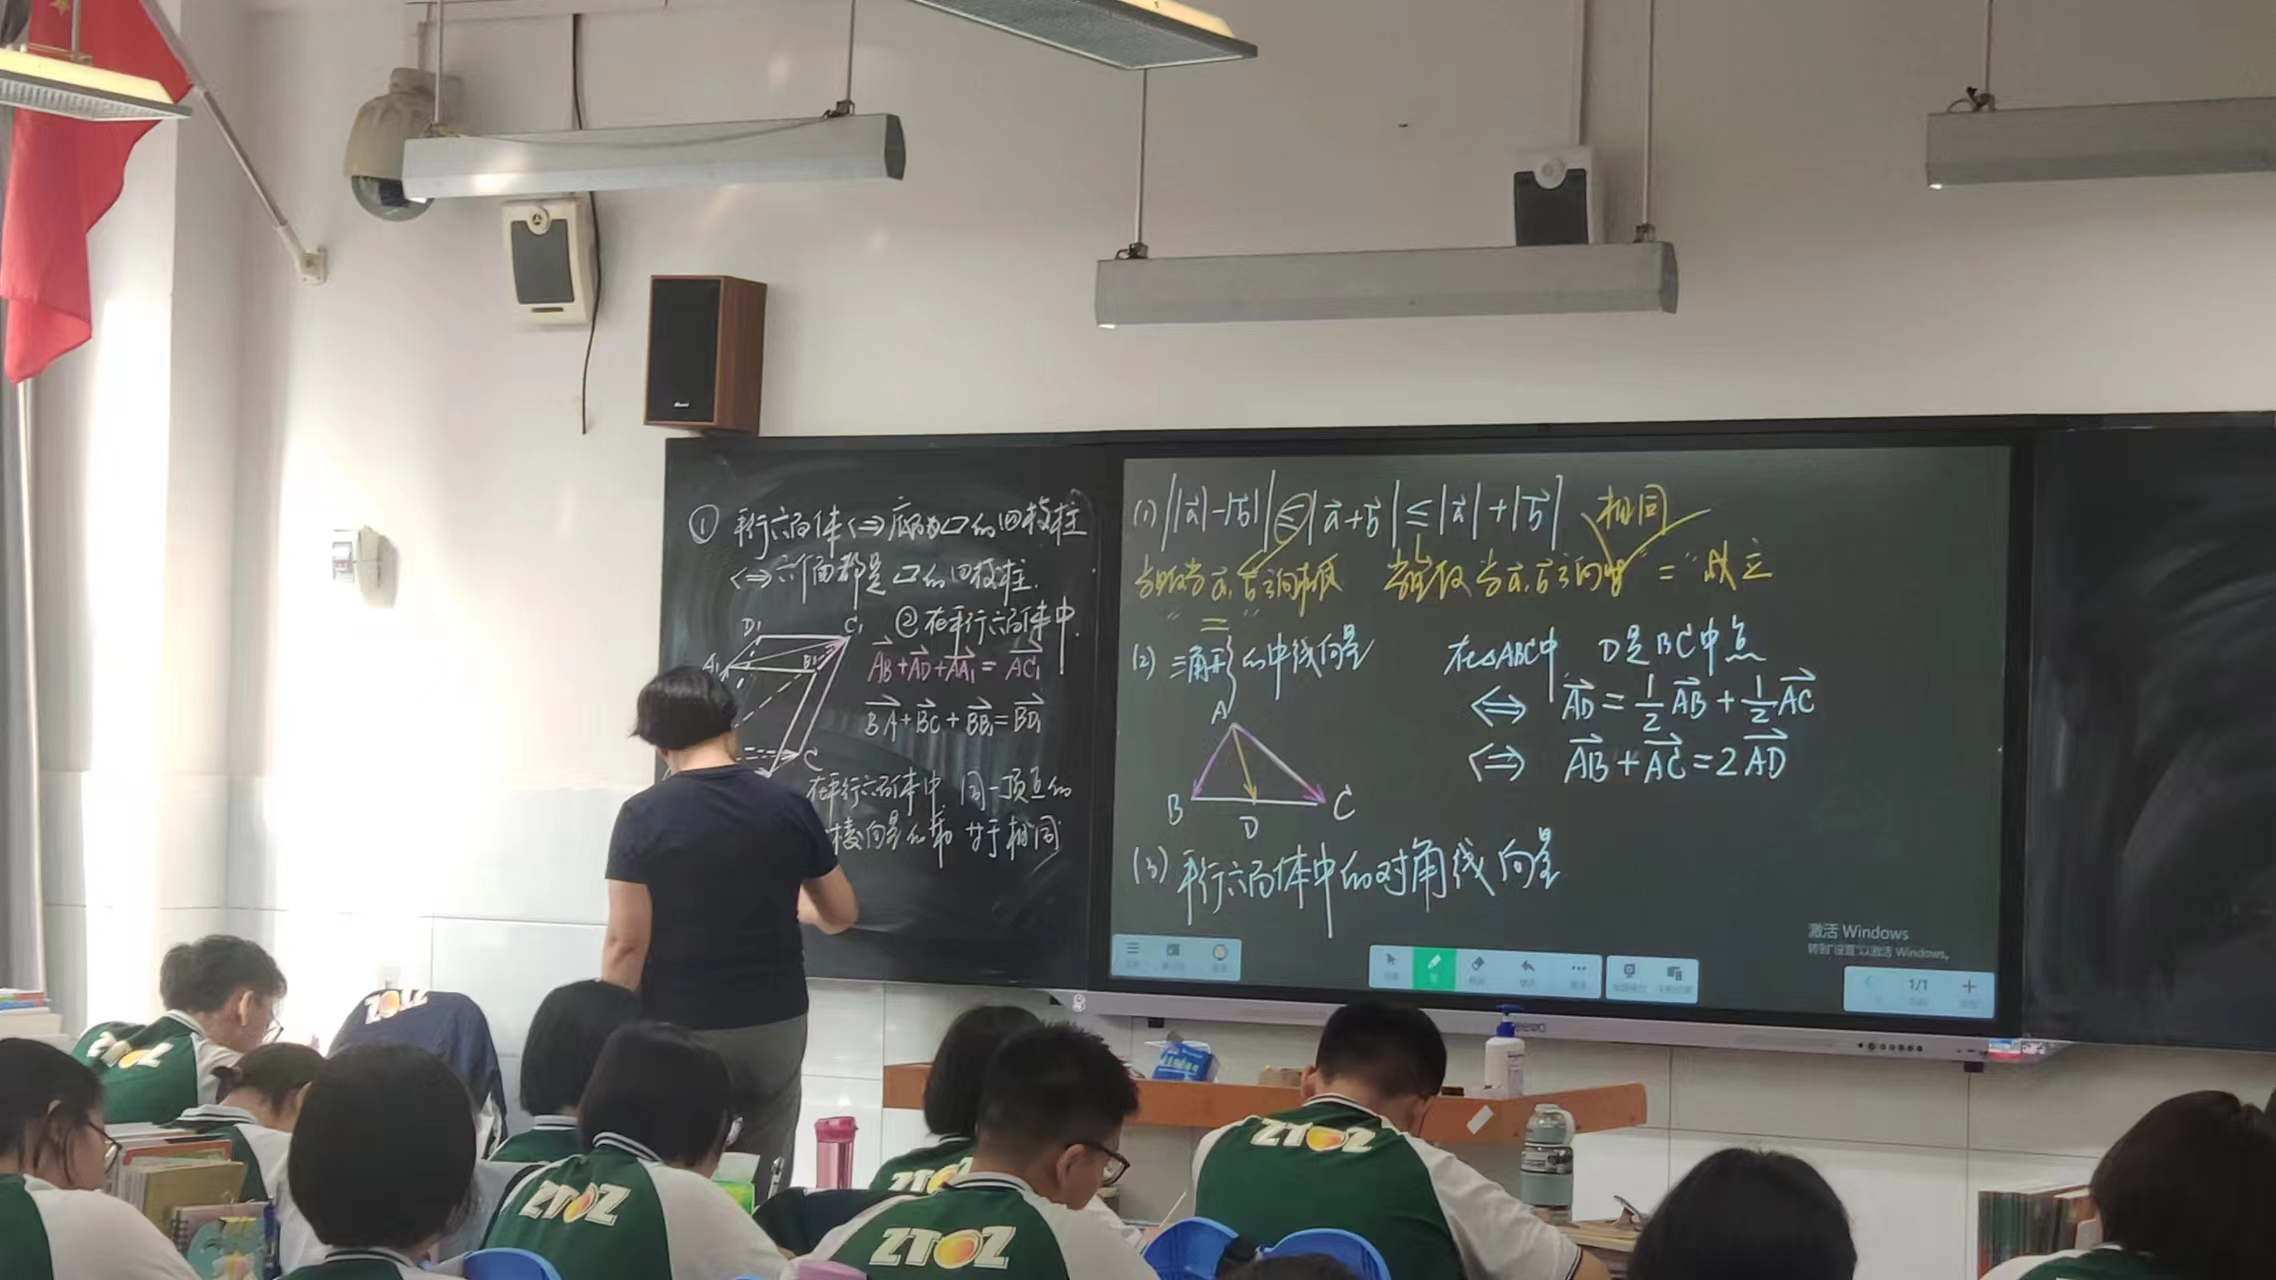 ① 平行六面体⇔底面为▱的四棱柱
⇔六个面都是▱的四棱柱.
②在平行六面体中
D₁
C₁
A₁
B₁
C
AB+AD+AA₁=AC₁
BA+BC+BB₁=BD₁
在平行六面体中,同一顶点的
棱向量的和 等于相同
(1) ||a|-|b||≤|a+b|≤|a|+|b| 相同
当且仅当a,b方向相反 "=" 当且仅当a,b方向 "="成立
(2) 三角形的中线向量
在△ABC中 D是BC中点
⇔ AD=1/2AB+1/2AC
⇔ AB+AC=2AD
A
B
D
C
(3) 平行六面体中的对角线向量
激活 Windows
转到"设置"以激活 Windows。
1/1
ZTOZ
ZTOZ
ZTOZ
ZTOZ
ZTOZ